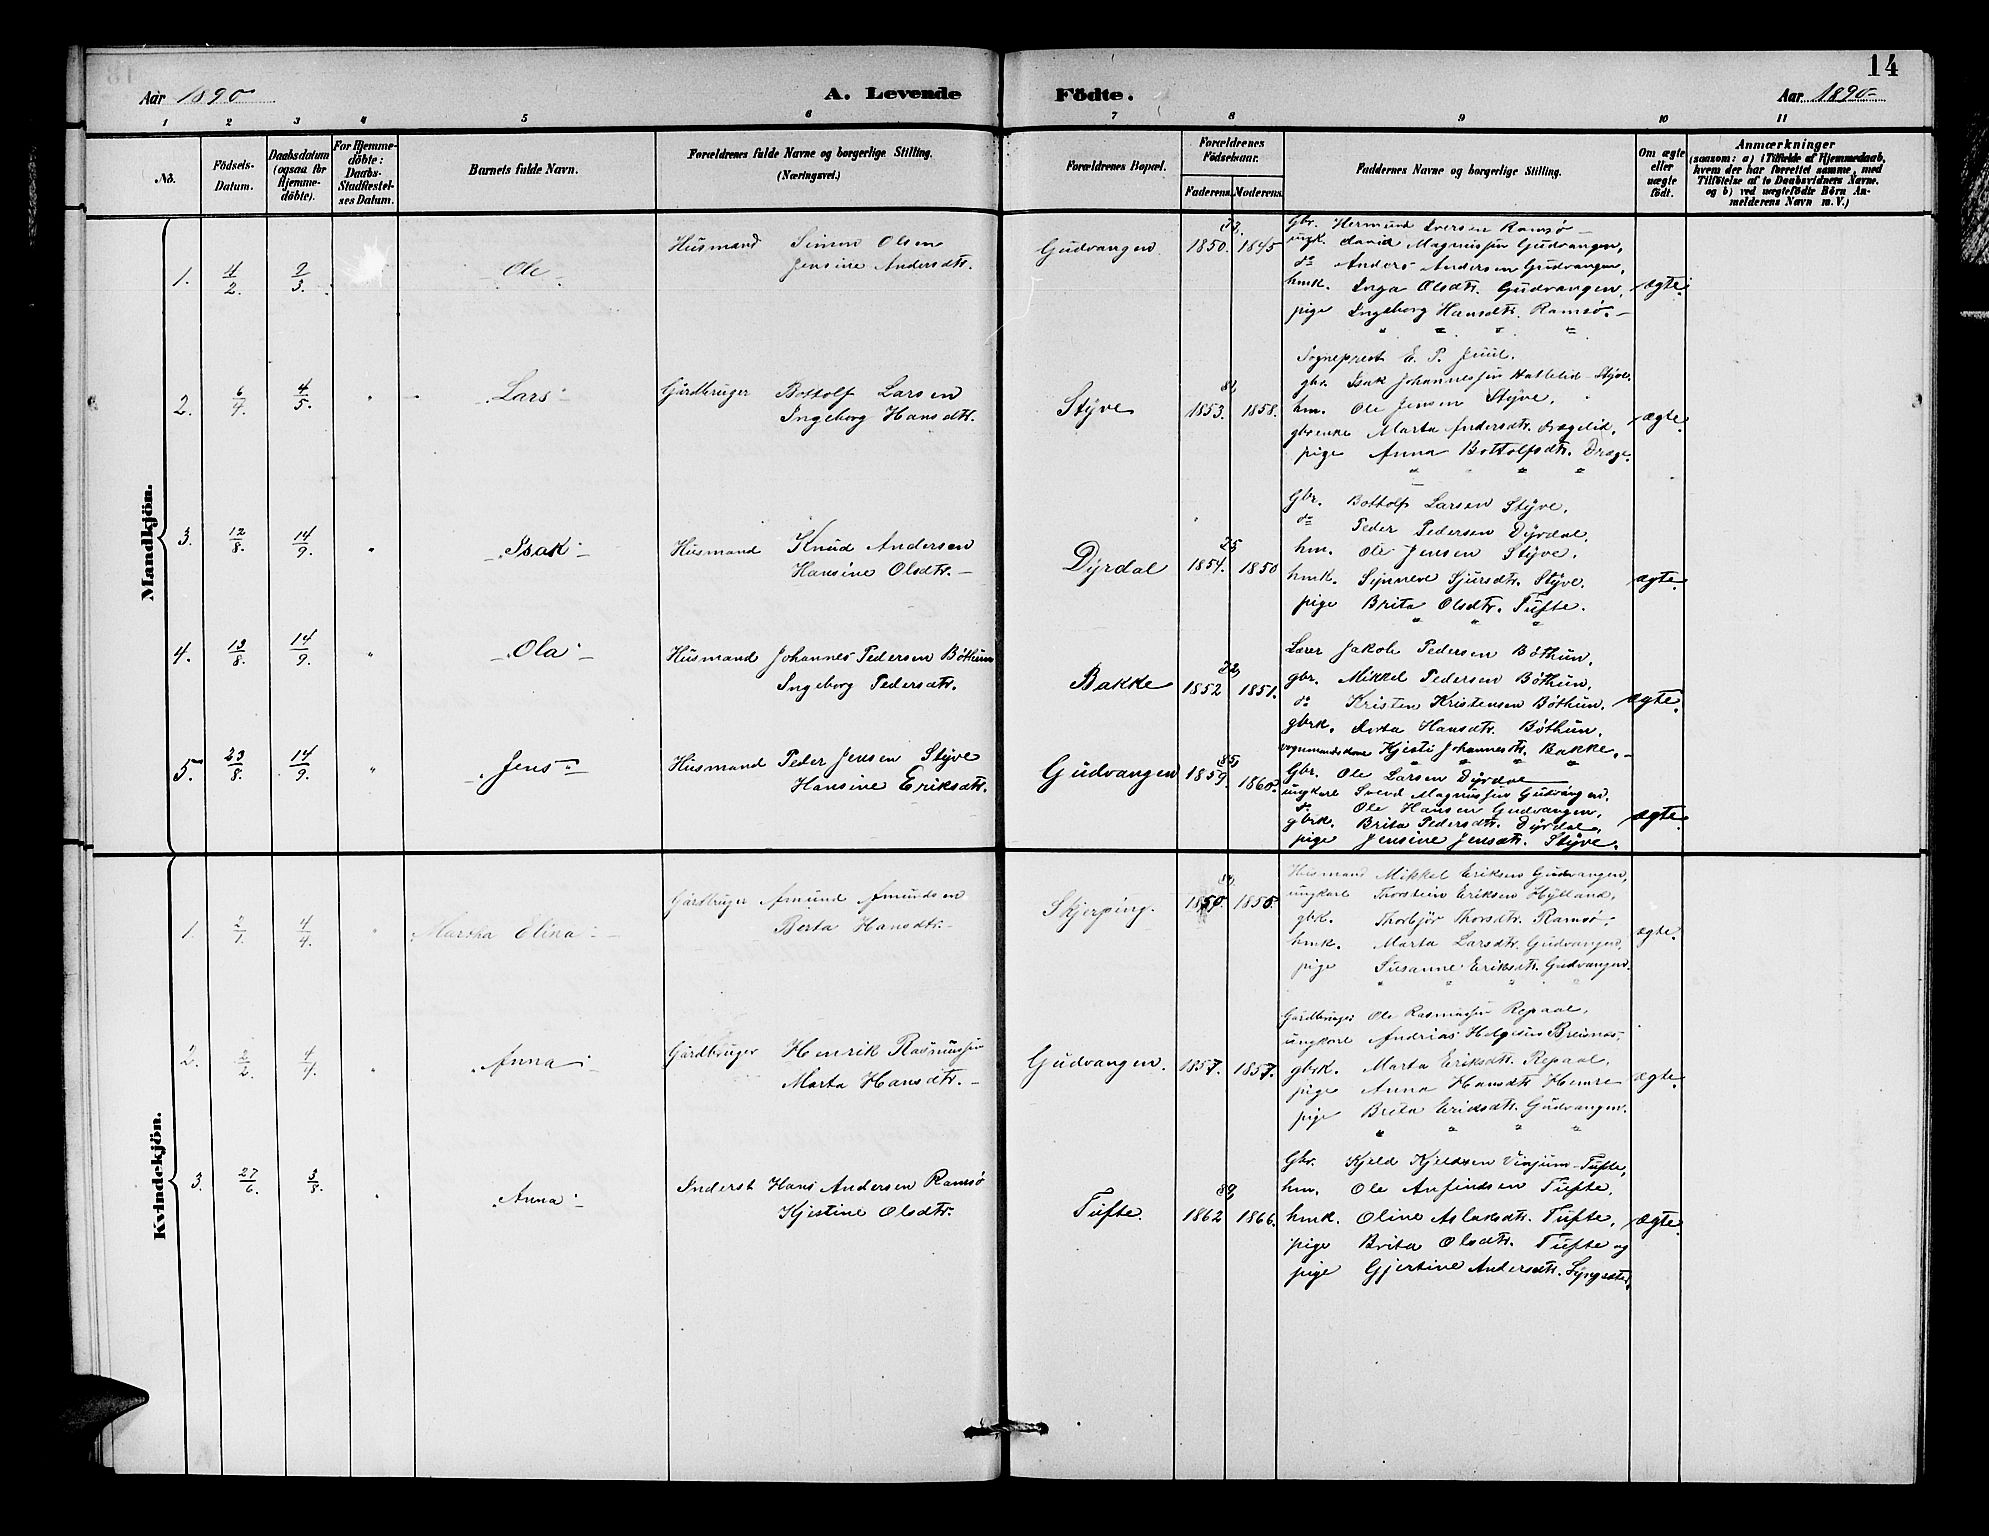 14
Aar 1890 A. Levende Födte. Aar 1890
1 2 3 4 5 6 7 8 9 10 11
No. Födsels-Datum. Daabsdatum (ogsaa for Hjemmedöbte). For Hjemmedöbte: Daabs-Stadfæstelses Datum. Barnets fulde Navn. Forældrenes fulde Navne og borgerlige Stilling. (Næringsvei.) Forældrenes Bopæl. Forældrenes Födselsaar. Faderens. Moderens. Faddernes Navne og borgerlige Stilling. Om ægte eller uægte födt. Anmærkninger (saasom: a) i Tilfælde af Hjemmedaab, hvem der har forrettet samme, med Tilföielse af to Daabsvidners Navne, og b) ved uægtefödte Börn Anmelderens Navn m. V.)
Mandkjön.
1. 4/2 2/3 Ole Husmand Simon Olsen
Jensine Andersdtr.
Gudvangen 1850. 1845 ægte.
Gbr. Hermund Iversen Ramsø
ungk. David Magnussen Gudvangen,
do Anders Andersen Gudvangen,
hmk. Inga Olsdtr. Gudvangen,
pige Ingeborg Hansdtr. Ramsø.
2. 6/4 4/5 " Lars Gårdbruger Bottolf Larsen
Ingeborg Hansdtr.
Stÿve 1853. 1858. ægte.
Sogneprest E. P. Juul.
gbr. Isak Johannessen Hallelid-Stÿve,
hm. Ole Jensen Stÿve,
gbrenke Marta Andersdtr. Drægelid,
pige Anna Bottolfsdtr. Drage.
3. 12/8 14/9 " Isak Husmand Knud Andersen
Hansine Olsdtr.
Dÿrdal 1854. 1850 ægte.
Gbr. Bottolf Larsen Stÿve,
do Peder Pedersen Dÿrdal,
hm. Ole Jensen Stÿve,
hmk. Synneve Sjursdtr. Stÿve,
pige Brita Olsdtr. Tufte.
4. 13/8 14/9 " Ola Husmand Johannes Pedersen Böthun
Ingeborg Pedersdtr.
Bakke 1852 1851. ægte.
Lærer Jakob Pedersen Böthun,
gbr. Mikkel Pedersen Böthun,
do Kristen Kristensen Böthun,
gbrk. Hansdtr. Böthun,
Kjersti Johannesdtr. Bakke.
5. 23/8 14/9 " Jens Husmand Peder Jensen Stÿve
Hansine Eriksdtr.
Gudvangen 1859. 1860. ægte.
Gbr. Ole Larsen Dÿrdal
ungkarl Svend Magnussen Gudvangen,
d. Ole Hansen Gudvangen,
gbrk. Brita Pedersdtr. Dÿrdal,
pige Jensine Jensdtr. Stÿve.
Kvindekjön.
1. 2/1 4/4 " Martha Elina Gårdbruger Amund Amundsen
Berta Hansdtr.
Skjerping. 1850. 1856. ægte.
Husmand Mikkel Eriksen Gudvangen,
ungkarl Thorstein Eriksen Hylland,
gbk. Thorbjör Thorsdtr. Ramsø,
hmk. Marta Larsdtr. Gudvangen,
pige Susanne Eriksdtr. Gudvangen.
2. 2/2 4/4 " Anna Gårdbruger Henrik Rasmussen
Marta Hansdtr.
Gudvangen. 1857. 1857. ægte.
Gårdbruger Ole Rasmussen Repaal,
ungkarl Andrias Helgesen Breisnes
gbrk. Marta Eriksdtr. Repaal,
pige Anna Hansdtr Hemre
pige Brita Eriksdtr. Gudvangen.
3. 27/6 3/8 " Anna Inderst Hans Andersen Ramsø
Kjestine Olsdtr.
Tufte. 1862 1866. ægte.
Gbr. Kjeld Kjeldsen Vinjum-Tufte,
hm. Ole Anfindsen Tufte,
hmk. Oline Aslaksdtr. Tufte,
pige Brita Olsdtr. Tufte og
pige Gjertine Andersdtr.